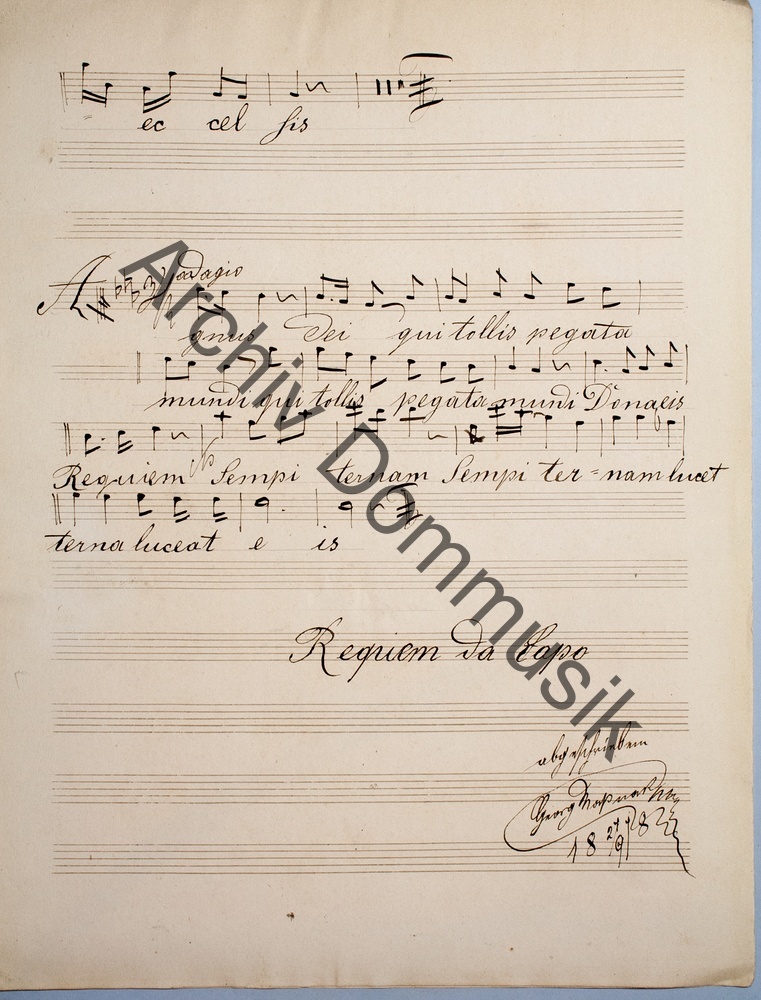 ec cel sis
adagio
Agnus Dei qui tollis pegata
mundi qui tollis pegata mundi Dona eis
Requiem Sempi ternam Sempi ter=nam lucet
terna luceat e is
Requiem da Capo
abgeschrieben
Georg
Archiv Dommusik